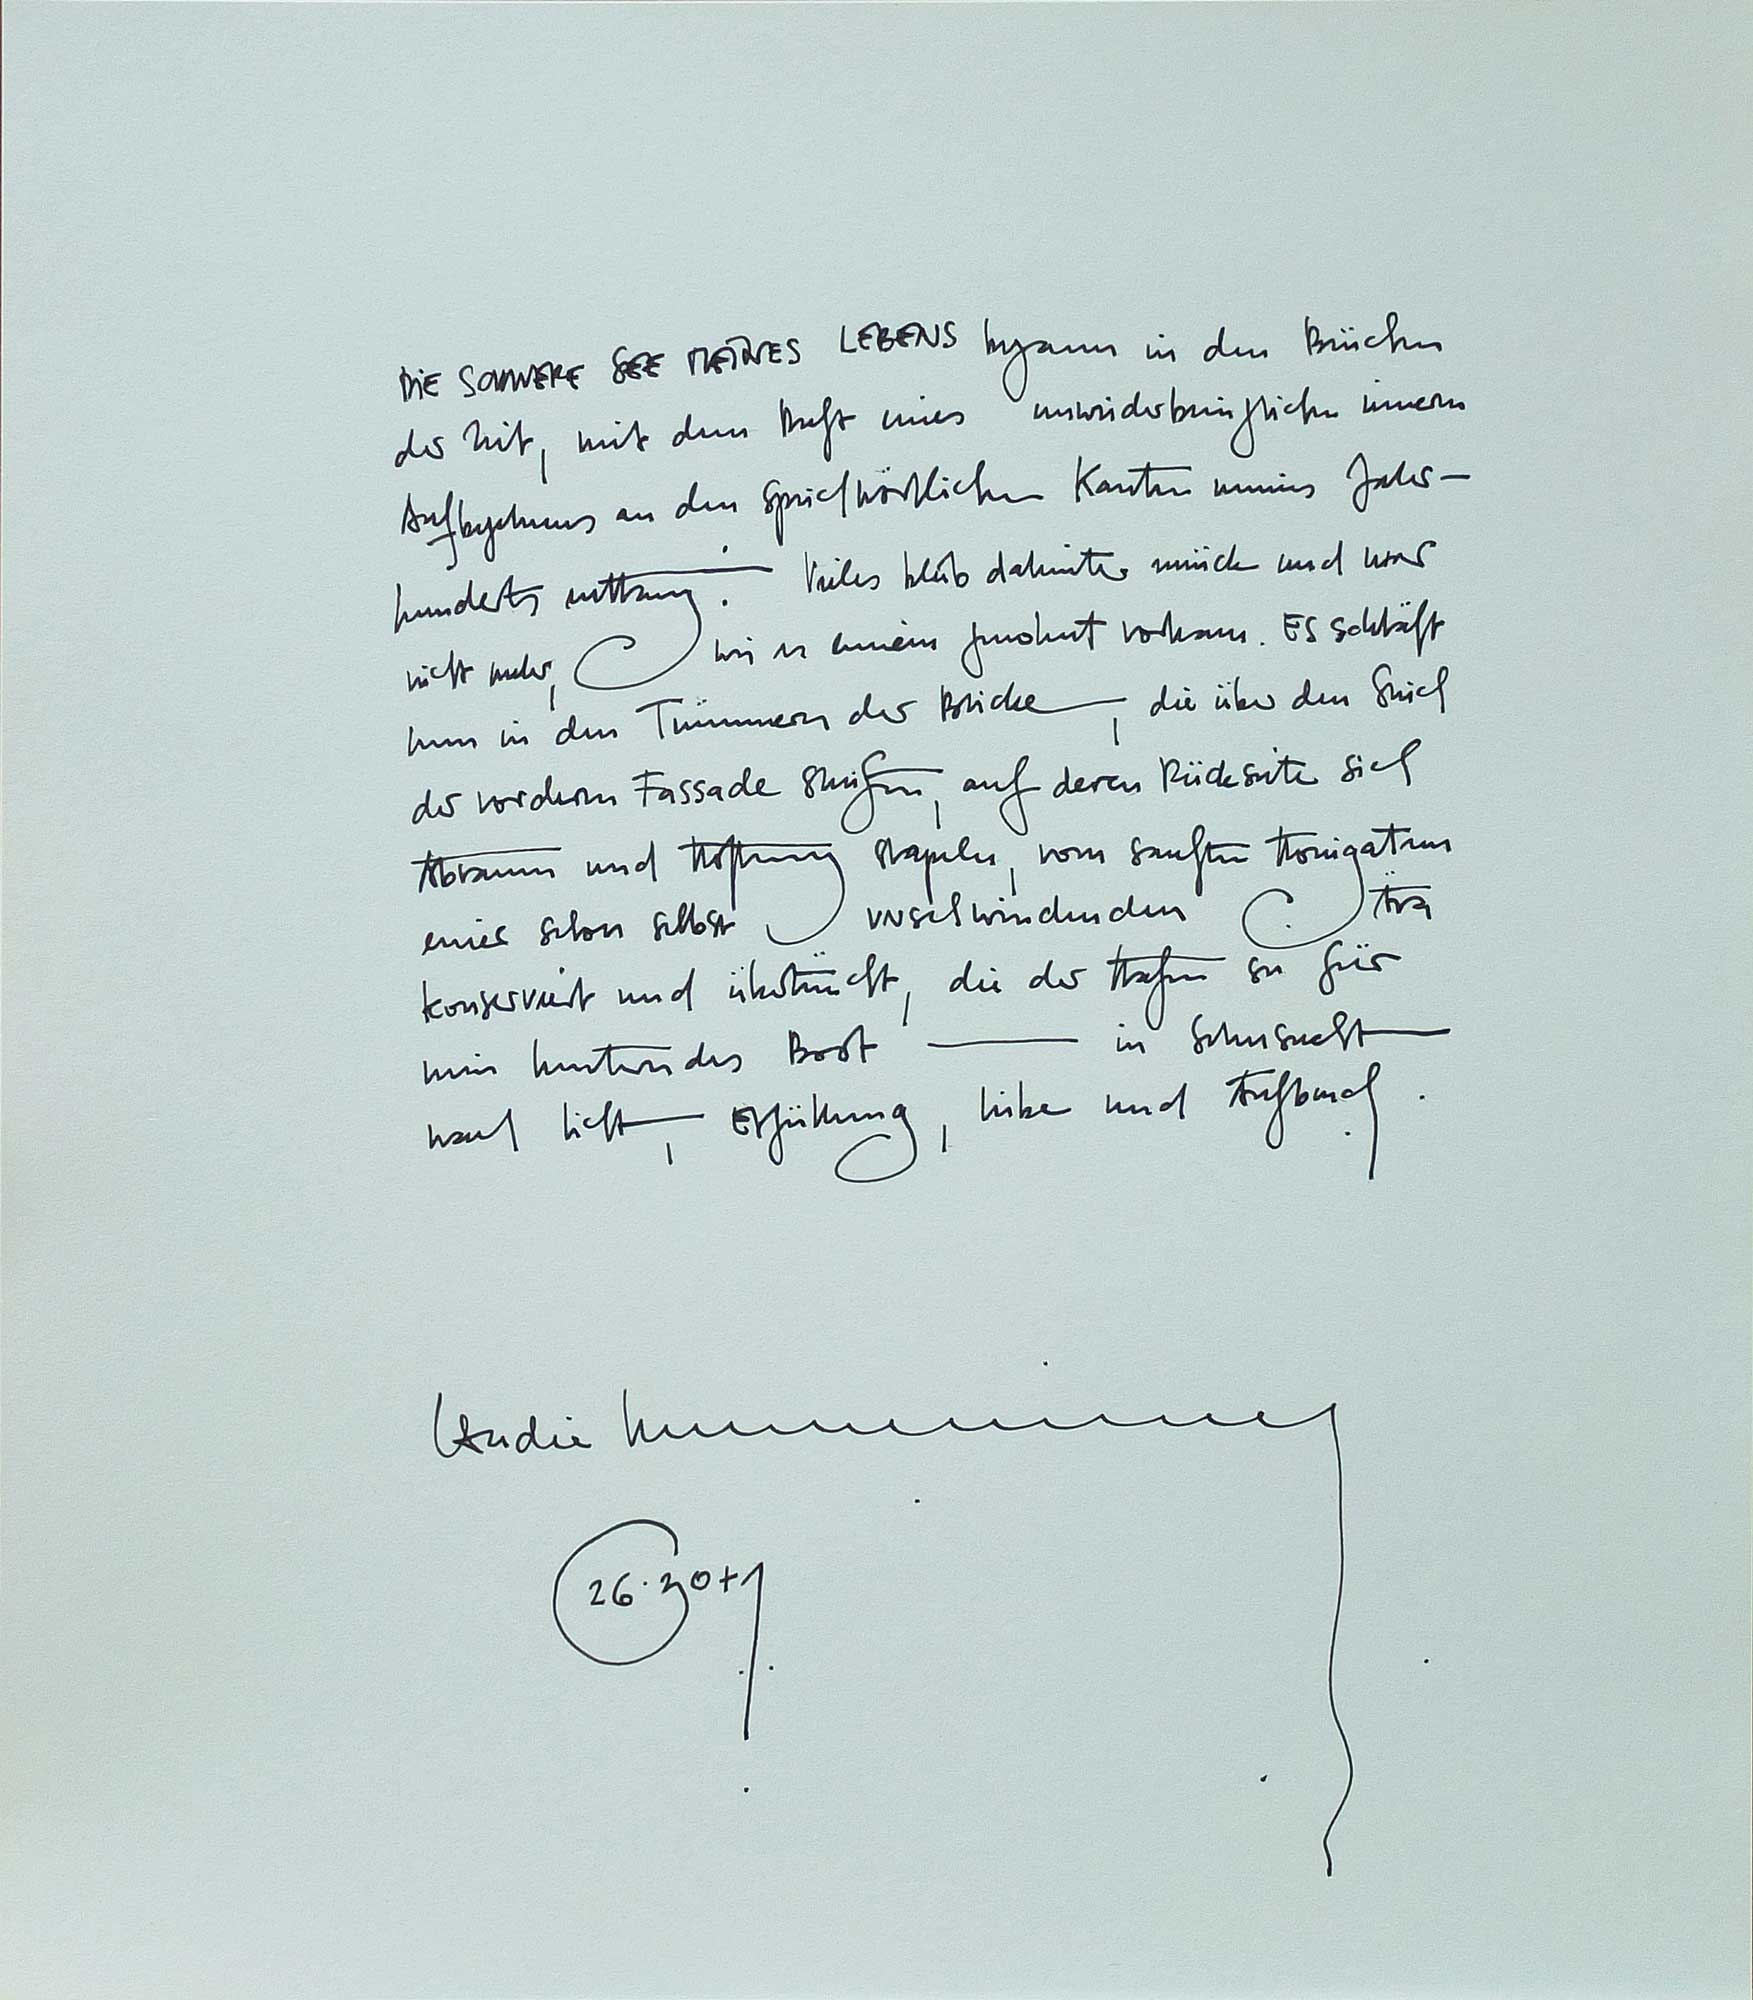 DIE SCHWERE SEE MEINES LEBENS begann in den Brüchen
der Zeit, mit dem Duft eines unwiederbringlichen innern
Aufbegehrens an den sprichwörtlichen Kanten meines Jahr-
hunderts entlang. Vieles blieb dahinter zurück und war
nicht mehr, wie es einem gewohnt vorkam. ES schläft
nun in den Trümmern der Blicke, die über den Strich
der vordern Fassade streifen, auf deren Rückseite sich
Abraum und Hoffnung stapeln, vom sanften Honigatem
einer schon selbst verschwindenden Ära
konserviert und übertüncht, die der Hafen sei für
mein kenterndes Boot — in Sehnsucht
nach Licht, Erfüllung, Liebe und Aufbruch.
26.30+1